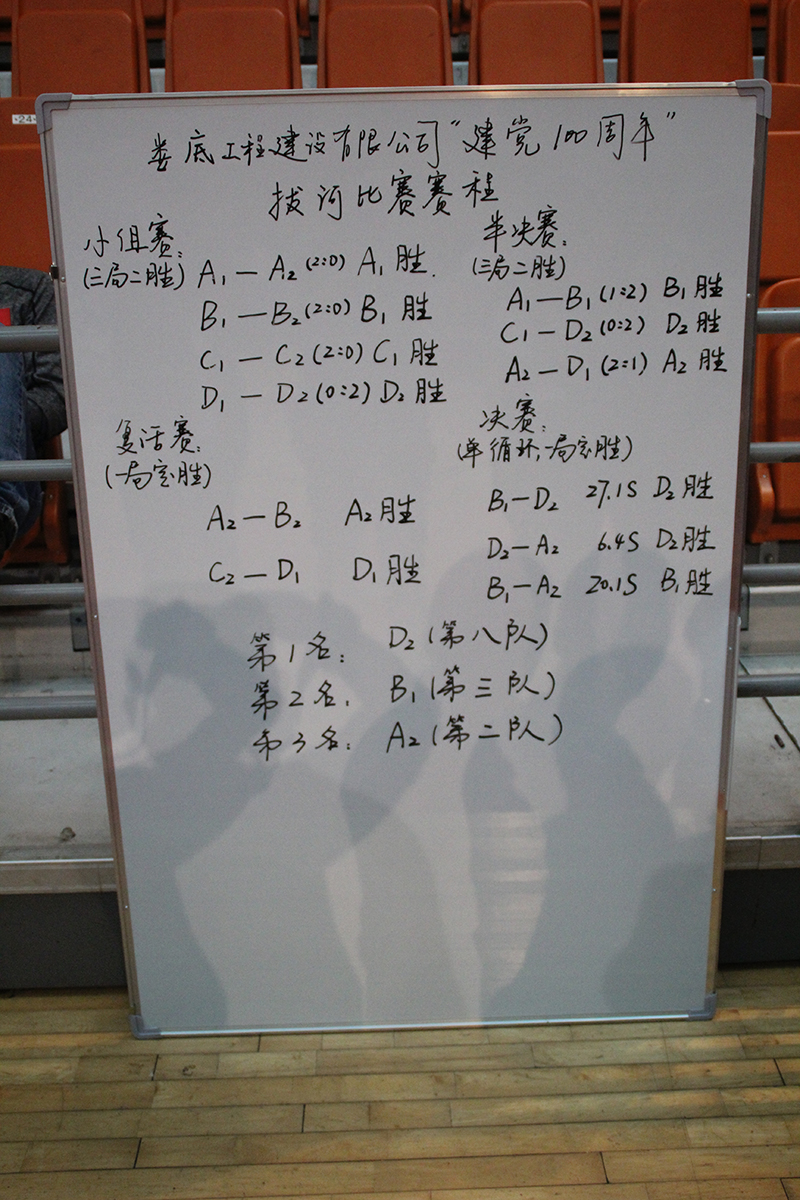 娄底工程建设有限公司"建党100周年"
拔河比赛赛程
小组赛:
(三局二胜) A₁—A₂ (2:0) A₁胜.
B₁—B₂ (2:0) B₁胜
C₁—C₂ (2:0) C₁胜
D₁—D₂ (0:2) D₂胜
半决赛:
(三局二胜)
A₁—B₁ (1:2) B₁胜
C₁—D₂ (0:2) D₂胜
A₂—D₁ (2:1) A₂胜
复活赛:
(一局定胜)
A₂—B₂ A₂胜
C₂—D₁ D₁胜
决赛:
(单循环,一局定胜)
B₁—D₂ 27.1S D₂胜
D₂—A₂ 6.4S D₂胜
B₁—A₂ 20.1S B₁胜
第1名: D₂(第八队)
第2名: B₁(第三队)
第3名: A₂(第二队)
24